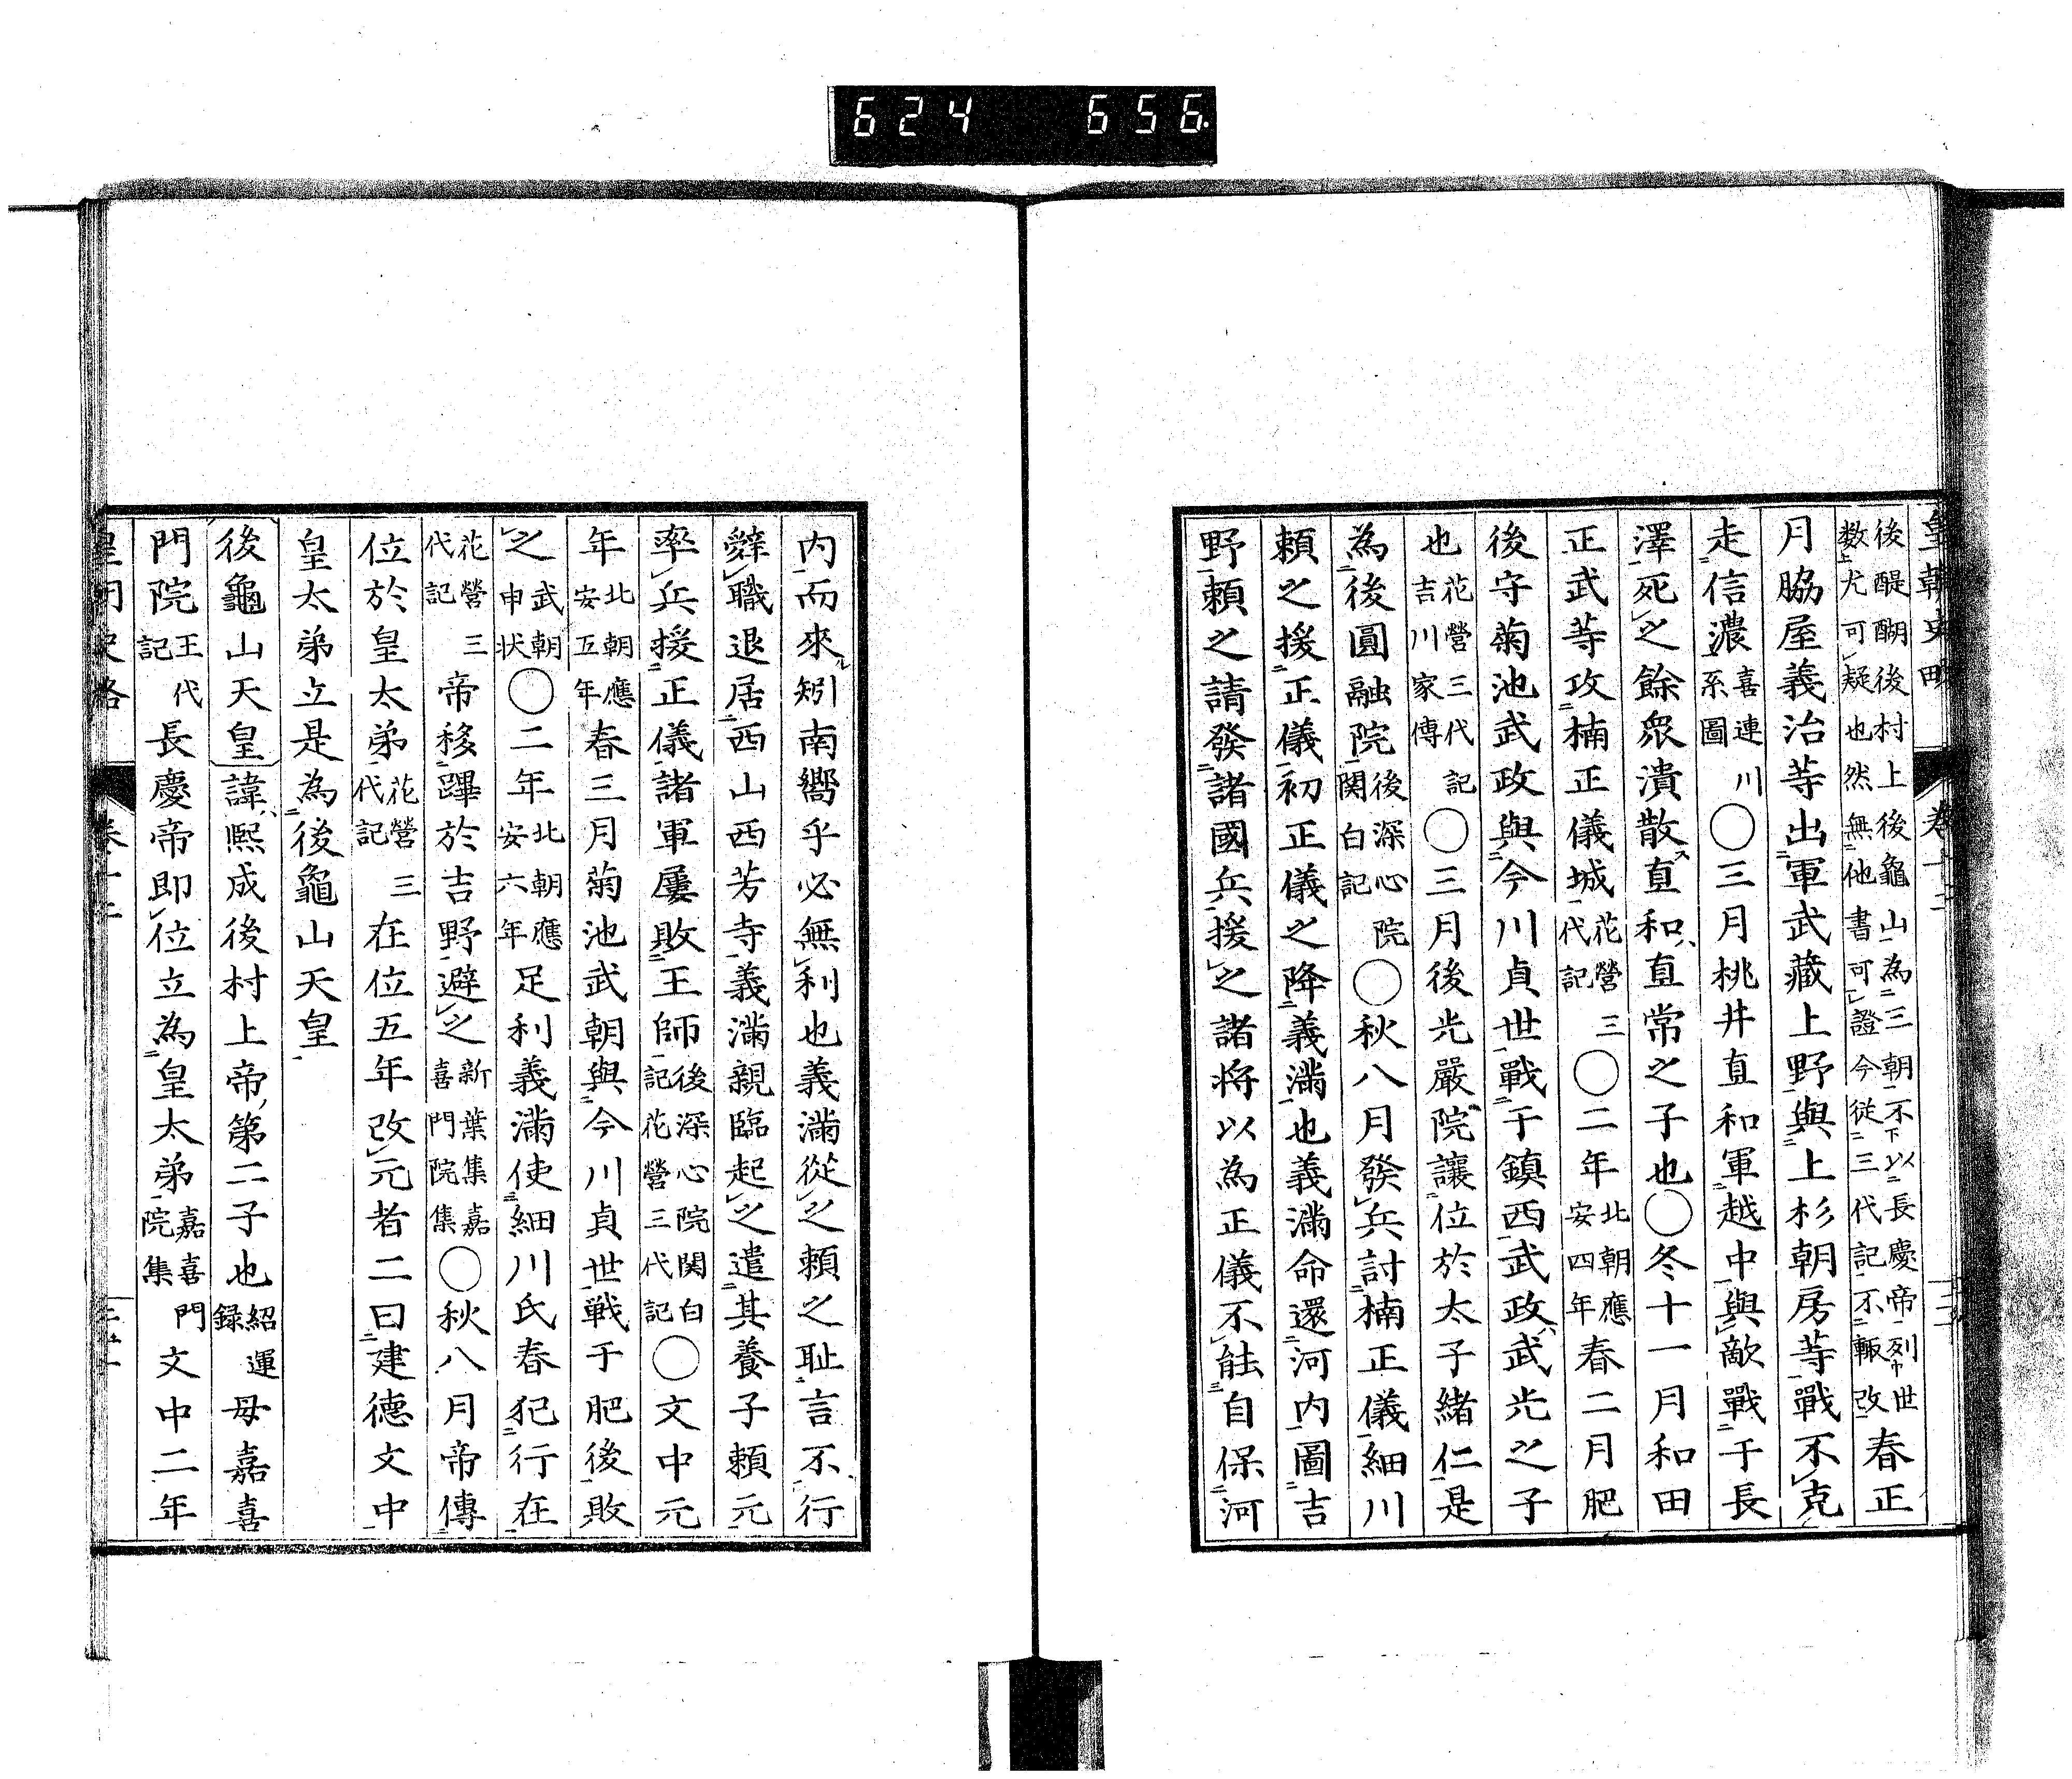 624 656
後醍醐後村上後龜山為三朝不以長慶帝列世
数尤可疑也然無他書可證今従三代記不輙改
春正
月脇屋義治等出軍武藏上野與上杉朝房等戰不克
走信濃喜連川系圖○三月桃井直和軍越中與敵戰于長
澤死之餘衆潰散直和直常之子也○冬十一月和田
正武等攻楠正儀城花營三代記○二年北朝應安四年春二月肥
後守菊池武政與今川貞世戰于鎮西武政武光之子
也花營三代記吉川家傳○三月後光嚴院讓位於太子緒仁是
為後圓融院後深心院関白記○秋八月發兵討楠正儀細川
頼之援正儀初正儀之降義滿也義滿命還河内圖吉
野頼之請發諸國兵援之諸将以為正儀不能自保河
内而來矧南嚮乎必無利也義滿從之頼之耻言不行
辭職退居西山西芳寺義滿親臨起之遣其養子頼元
率兵援正儀諸軍屢敗王師後深心院関白記花營三代記○文中元
年北朝應安五年春三月菊池武朝與今川貞世戦于肥後敗
之武朝申状○二年北朝應安六年足利義滿使細川氏春犯行在
花營三代記帝移蹕於吉野避之新葉集嘉喜門院集○秋八月帝傳
位於皇太弟花營三代記在位五年改元者二曰建德文中
皇太弟立是為後龜山天皇
後龜山天皇諱熙成後村上帝第二子也紹運録母嘉喜
門院王代記長慶帝即位立為皇太弟嘉喜門院集文中二年